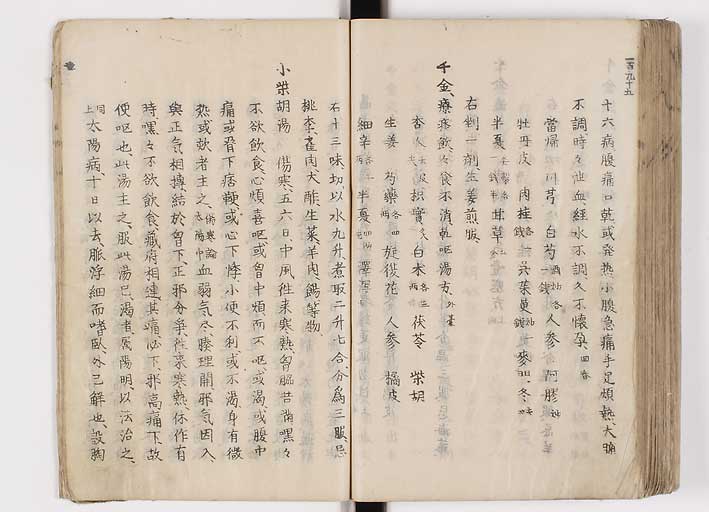 一百九十五
十六病腹痛口乾或発热小腹急痛手足煩熱大崩
不調時々泄血経水不調久不懐孕 四春
當歸 川芎 白芍 人参 阿膠
牡丹皮 肉桂 呉茱萸 麥門冬
半夏 甘草
右剉一剤生姜煎服
千金療痰飲食不消乾呕湯方 外臺
杏人 枳實 白朮 茯苓 柴胡
生姜 芍藥 旋復花 人参 橘皮
細辛 半夏 澤瀉
右十三味切以水九升煮取二升七合分為三服忌
桃李雀肉大酢生菜羊肉餳等物
小柴胡湯 傷寒五六日中風徃来寒熱胷脇苦満嘿々
不欲飲食心煩喜呕或胷中煩而不呕或渇或腹中
痛或脅下痞鞕或心下悸小便不利或不渇身有微
热或欬者主之 傷寒論太陽中 血弱气尽腠理開邪气因入
與正气相摶結於脅下正邪分爭徃来寒熱休作有
時嘿々不欲飲食藏府相連其痛必下邪高痛下故
使呕也此湯主之服此湯已渇者属陽明以法治之
同上 太陽病十日以去脉浮細而嗜臥外已解也設胸